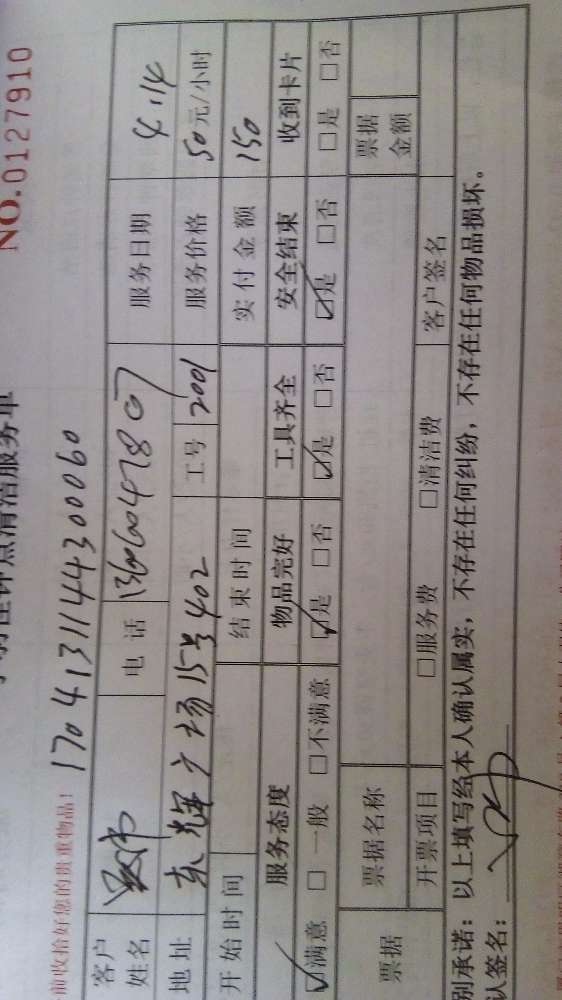 NO.0127910
钟点清洁服务单
前收拾好您的贵重物品！ 17041311443000060
客户姓名 电话 13606047807 服务日期 4.14
地址 东辉广场15号402 工号 2001 服务价格 50元/小时
开始时间 结束时间 实付金额 150
服务态度 物品完好 工具齐全 安全结束 收到卡片
☑满意 □一般 □不满意 ☑是 □否 ☑是 □否 ☑是 □否 □是 □否
票据 票据名称 票据金额
开票项目 □服务费 □清洁费 客户签名
别承诺：以上填写经本人确认属实，不存在任何纠纷，不存在任何物品损坏。
认签名：